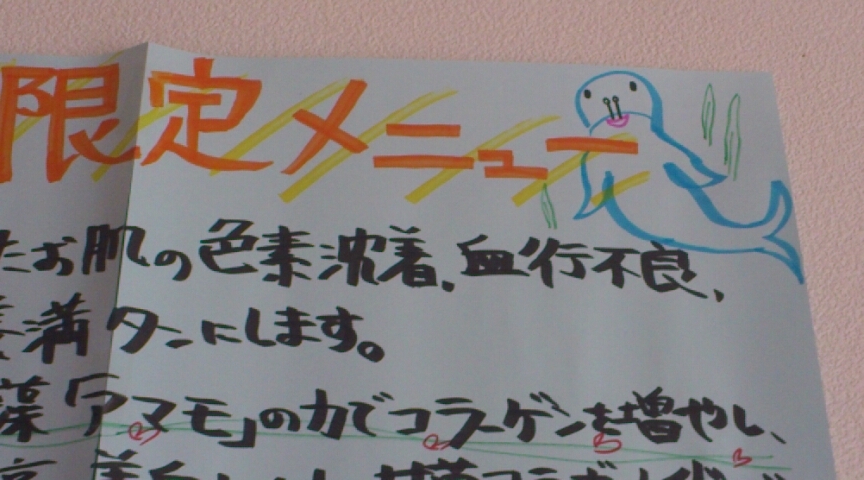 限定メニュー
たお肌の色素沈着、血行不良、
満タンにします。
藻「アマモ」の力でコラーゲンを増やし、